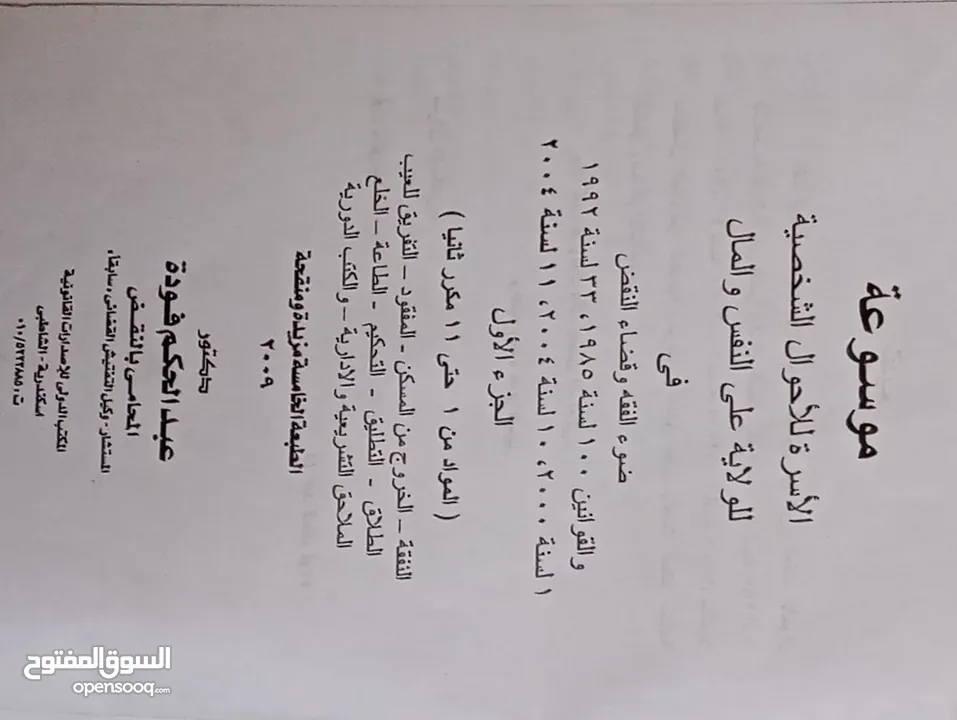 موسوعة
الأسرة للأحوال الشخصية
للولاية على النفس والمال
فى
ضوء الفقه وقضاء النقض
والقوانين ١٠٠ لسنة ١٩٨٥، ٣٣ لسنة ١٩٩٢
١ لسنة ٢٠٠٠، ١٠ لسنة ٢٠٠٤، ١١ لسنة ٢٠٠٤
الجزء الأول
( المواد من ١ حتى ١١ مكرر ثانيا )
النفقة - الخروج من المسكن - المفقود - التفريق للعيب
الطلاق - التطليق - التحكيم - الطاعة - الخلع
الملاحق التشريعية والادارية - والكتب الدورية
الطبعة الخامسة مزيدة ومنقحة
٢٠٠٩
دكتور
عبد الحكم فودة
المحامى بالنقض
المستشار - وكيل التفتيش القضائى سابقاً
المكتب الدولى للإصدارات القانونية
اسكندرية - الشاطبى
السوق المفتوح
opensooq.com